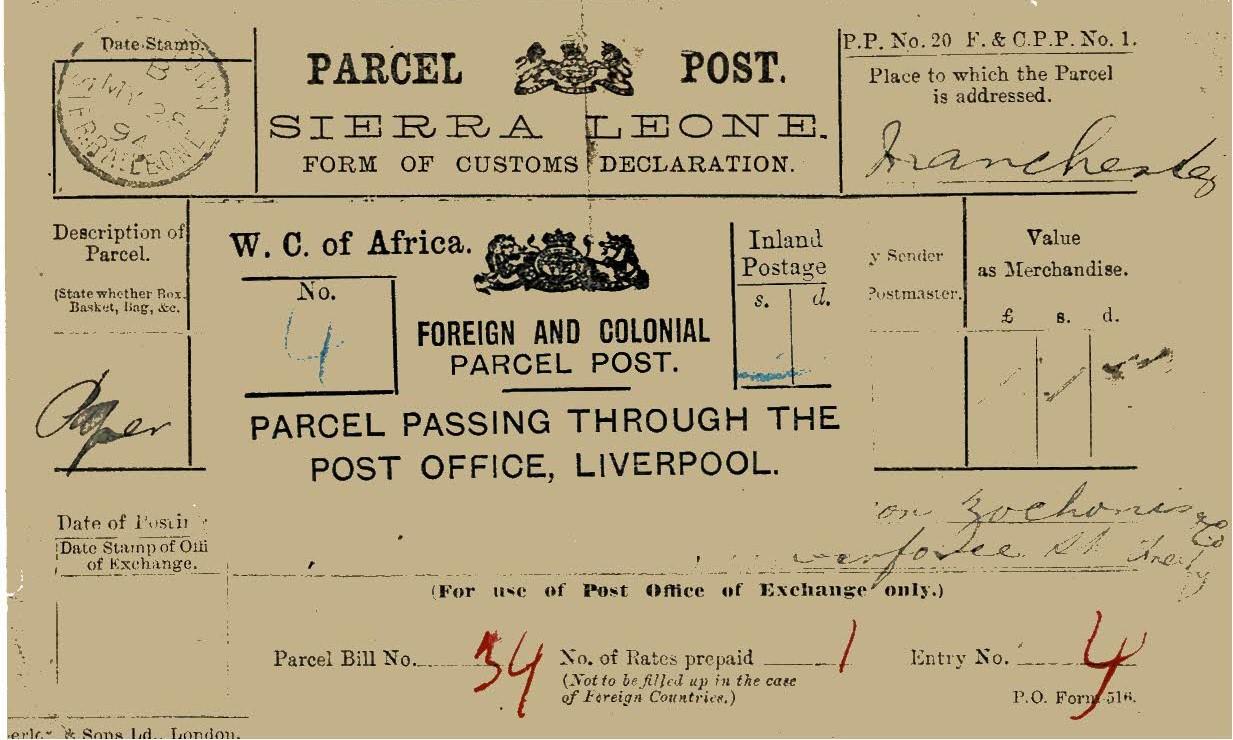 Date Stamp.
B
MY 26
94
SIERRA LEONE
PARCEL POST.
SIERRA LEONE.
FORM OF CUSTOMS DECLARATION.
P.P. No. 20 F. & C.P.P. No. 1.
Place to which the Parcel
is addressed.
Manchester
Description of
Parcel.
(State whether Box,
Basket, Bag, &c.
Paper
W. C. of Africa.
No.
4
FOREIGN AND COLONIAL
PARCEL POST.
Inland
Postage
s. d.
y Sender
Postmaster.
Value
as Merchandise.
£ s. d.
PARCEL PASSING THROUGH THE
POST OFFICE, LIVERPOOL.
on Zochonis & Co
St
Date of Postin
Date Stamp of Offi
of Exchange.
(For use of Post Office of Exchange only.)
Parcel Bill No. 34 No. of Rates prepaid 1 Entry No. 4
(Not to be filled up in the case
of Foreign Countries.)
P.O. Form 516.
& Sons Ld., London.